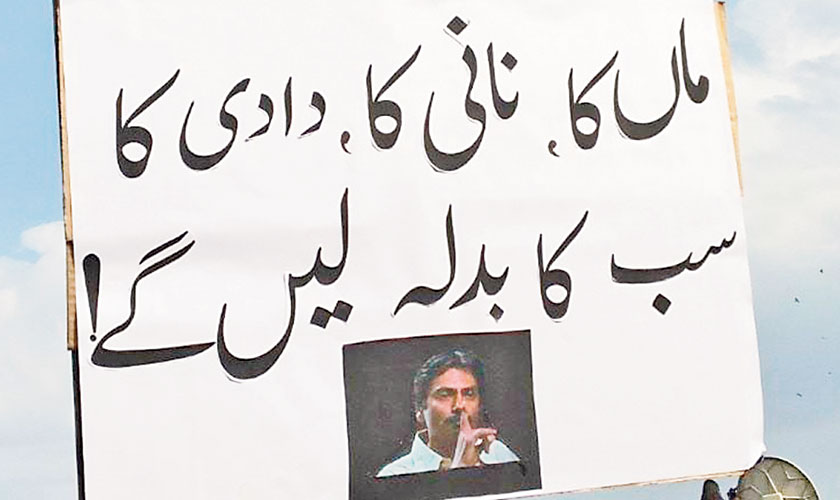 ماں کا، نانی کا، دادی کا
سب کا بدلہ لیں گے!